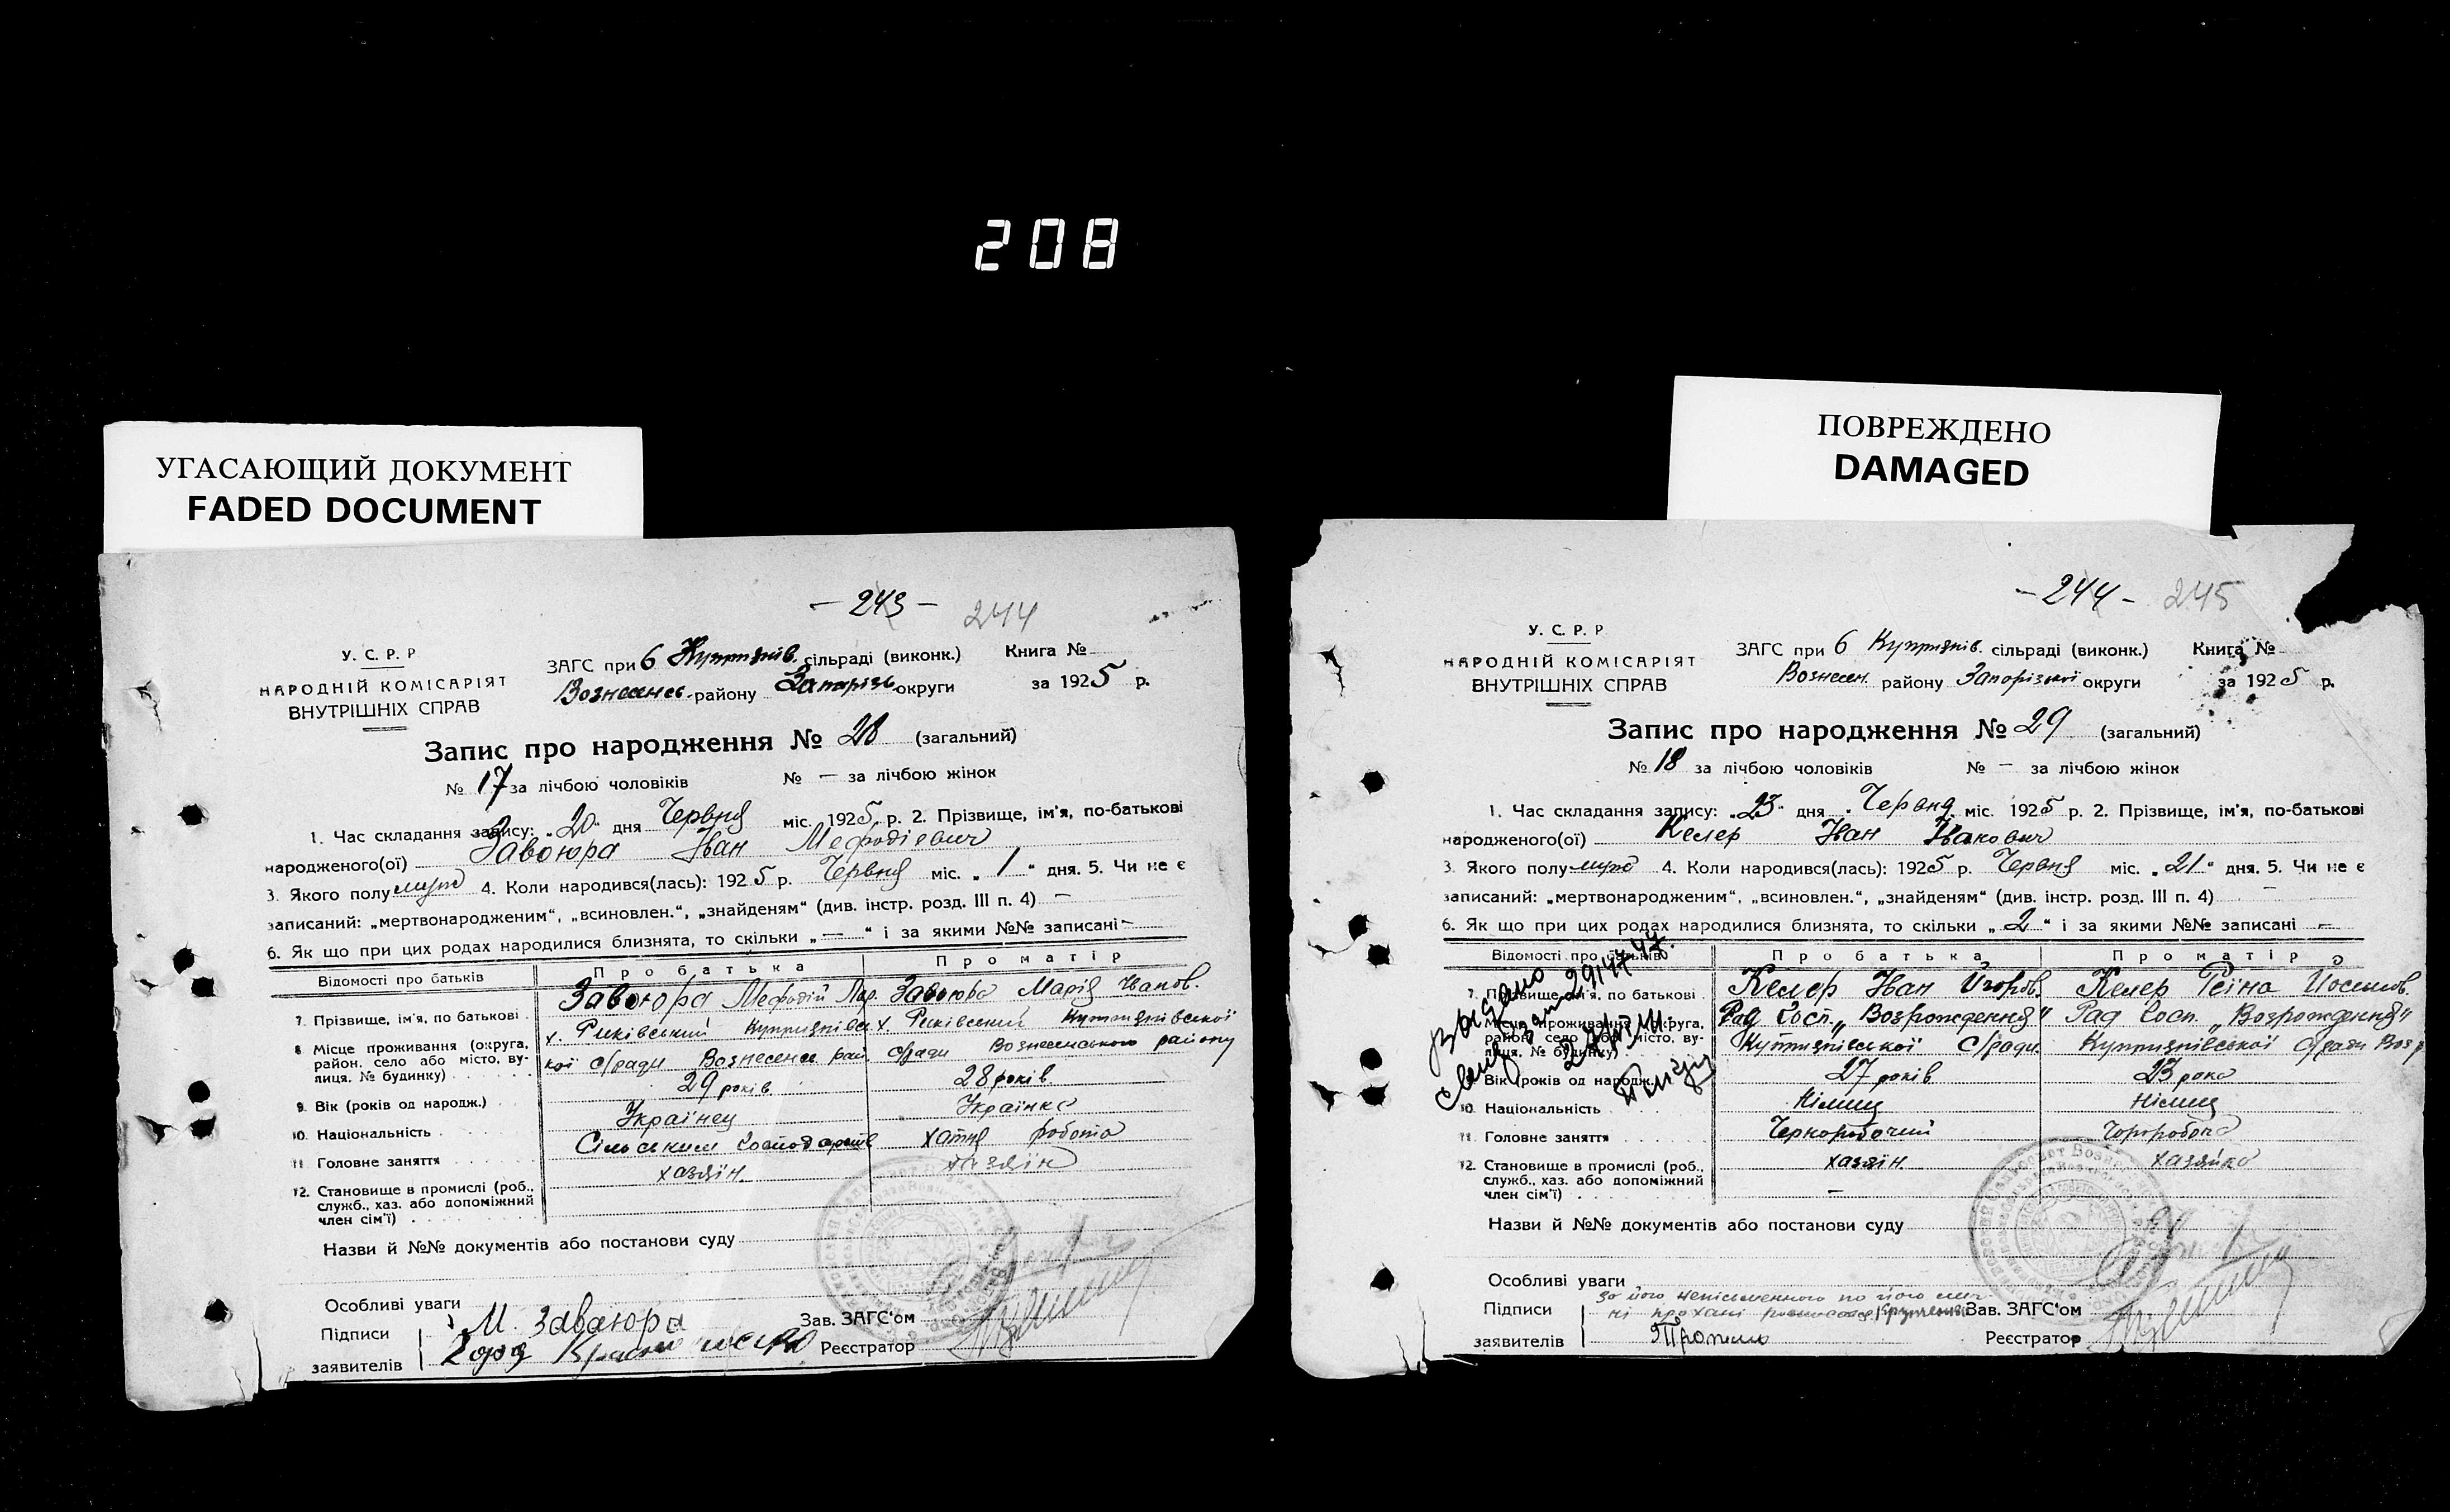 208
УГАСАЮЩИЙ ДОКУМЕНТ
FADED DOCUMENT
— 243 — 244
У. С. Р. Р
НАРОДНІЙ КОМІСАРІЯТ
ВНУТРІШНІХ СПРАВ
ЗАГС при 6 Куприянів. сільраді (виконк.) Книга №
Вознесенсь. району Запорізь. округи за 1925 р.
Запис про народження № 28 (загальний)
№ 17 за лічбою чоловіків № — за лічбою жінок
1. Час складання запису: „20“ дня Червня міс. 1925 р. 2. Прізвище, ім'я, по-батькові
народженого(ої) Завоюра Іван Мефодіевич
3. Якого полу муж 4. Коли народився(лась): 1925 р. Червня міс. „1“ дня. 5. Чи не є
записаний: „мертвонародженим“, „всиновлен.“, „знайденям“ (див. інстр. розд. III п. 4) —
6. Як що при цих родах народилися близнята, то скільки „—“ і за якими №№ записані —
Відомості про батьків Про батька Про матір
7. Прізвище, ім'я, по батькові Завоюра Мефодій Завоюра Марія Іванов.
8. Місце проживання (округа, район, село або місто, вулиця, № будинку) х. Риківський Куприянівської с/ради Вознесенс. рай. х. Риківський Куприянівської с/ради Вознесенського району
9. Вік (років од народж.) 29 років 28 років
10. Національність Українец Українка
11. Головне заняття Сільським господарств хатня робота
12. Становище в промислі (роб., служб., хаз. або допоміжний член сім'ї) хазяін. хазяін
Назви й №№ документів або постанови суду
Особливі уваги
Підписи М. Заваюра Зав. ЗАГС'ом
заявителів Реєстратор
ПОВРЕЖДЕНО
DAMAGED
— 244 — 245
У. С. Р. Р
НАРОДНІЙ КОМІСАРІЯТ
ВНУТРІШНІХ СПРАВ
ЗАГС при 6 Куприянів. сільраді (виконк.) Книга №
Вознесен. району Запорізької округи за 1925 р.
Запис про народження № 29 (загальний)
№ 18 за лічбою чоловіків № — за лічбою жінок
1. Час складання запису: „23“ дня Червня міс. 1925 р. 2. Прізвище, ім'я, по-батькові
народженого(ої) Келер Іван Іванович
3. Якого полу муж 4. Коли народився(лась): 1925 р. Червня міс. „21“ дня. 5. Чи не є
записаний: „мертвонародженим“, „всиновлен.“, „знайденям“ (див. інстр. розд. III п. 4) —
6. Як що при цих родах народилися близнята, то скільки „2“ і за якими №№ записані —
Відомості про батьків Про батька Про матір
7. Прізвище, ім'я, по батькові Келер Іван Ігоров. Келер Реіна Иосипов.
8. Місце проживання (округа, район, село або місто, вулиця, № будинку) Рад Госп. „Возрождення“ Куприянівської с/ради Рад Госп. „Возрождення“ Куприянівської с/ради Воз р
9. Вік (років од народж.) 27 років 23 рока
10. Національність Німец Німец
11. Головне заняття Чернорабочий
12. Становище в промислі (роб., служб., хаз. або допоміжний член сім'ї) хазяін. хазяйка
Видано
Назви й №№ документів або постанови суду
Особливі уваги
Підписи Зав. ЗАГС'ом
заявителів Реєстратор